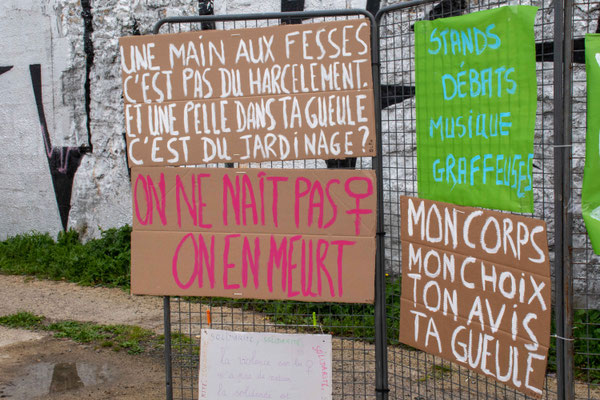 UNE MAIN AUX FESSES
C'EST PAS DU HARCELEMENT.
ET UNE PELLE DANS TA GUEULE
C'EST DU JARDINAGE?
ON NE NAÎT PAS ♀
ON EN MEURT
STANDS
DÉBATS
MUSIQUE
GRAFFEUSES
MON CORPS
MON CHOIX
TON AVIS
TA GUEULE
la
la solidarité et